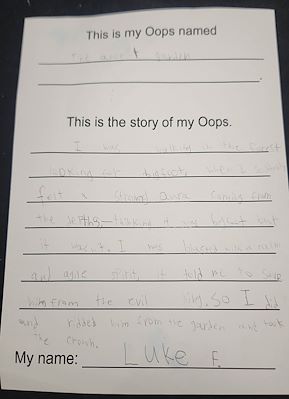 This is my Oops named
The garden
This is the story of my Oops.
I was walking in the forest
looking for bigfoot, when I
felt a strong aura coming from
the depths, thinking it was bigfoot but
it wasn't. I was with a calm
and agile spirit, it told me to save
him from the evil king. So I did
and ridded him from the garden and took
The crown.
My name: Luke F.